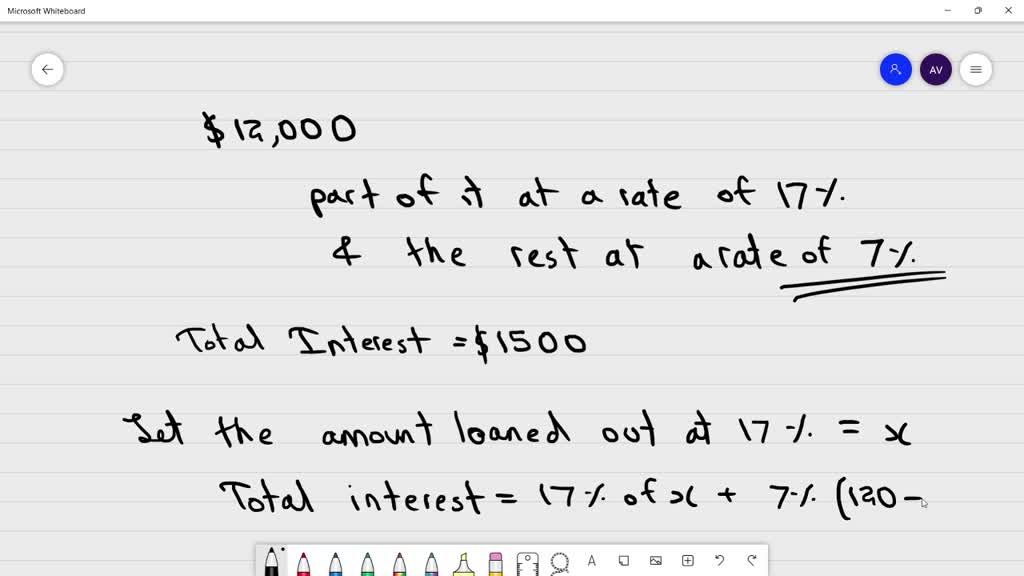 Microsoft Whiteboard
AV
$12,000
part of it at a rate of 17%
& the rest at a rate of 7%
Total Interest = $1500
Let the amount loaned out at 17% = x
Total interest = 17% of x + 7% (120 -
A